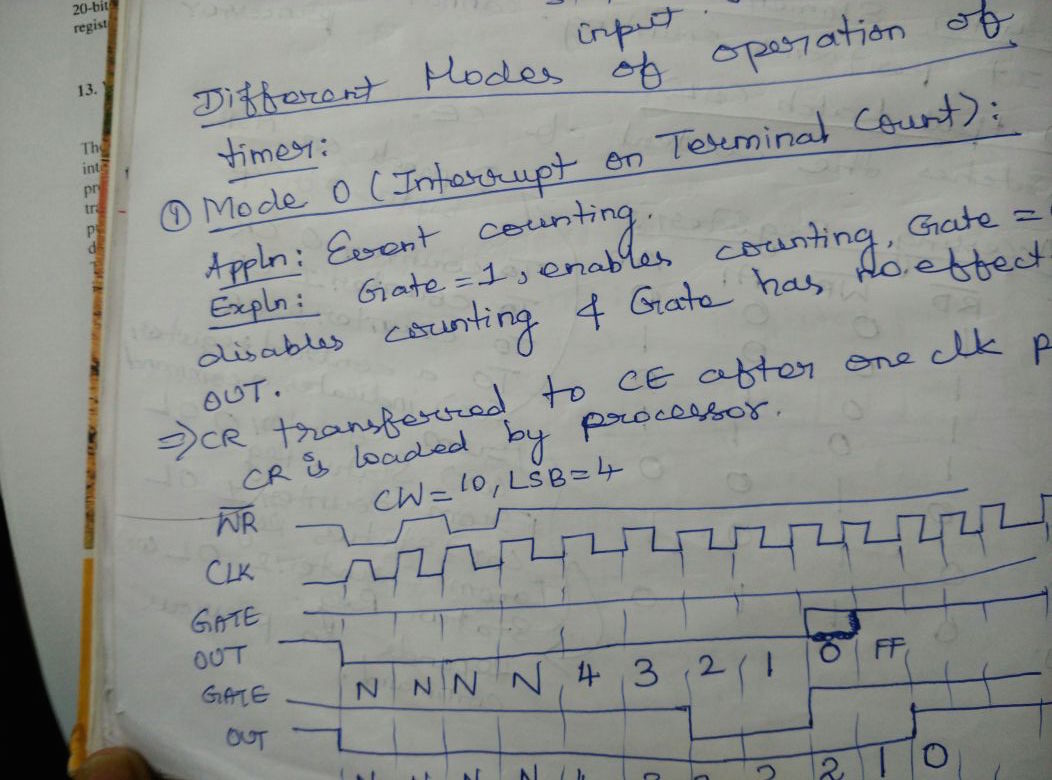 20-bit
regist
13.
input
Different Modes of operation of
timer:
① Mode 0 (Interrupt on Terminal Count):
Appln: Event counting.
Expln: Gate = 1, enables counting, Gate =
disables counting & Gate has no effect
OUT.
⇒ CR transferred to CE after one clk P
CR is loaded by processor.
CW = 10, LSB = 4
WR
CLK
GATE
OUT
N N N N 4 3 2 1 0 FF
GATE
OUT
2 1 0